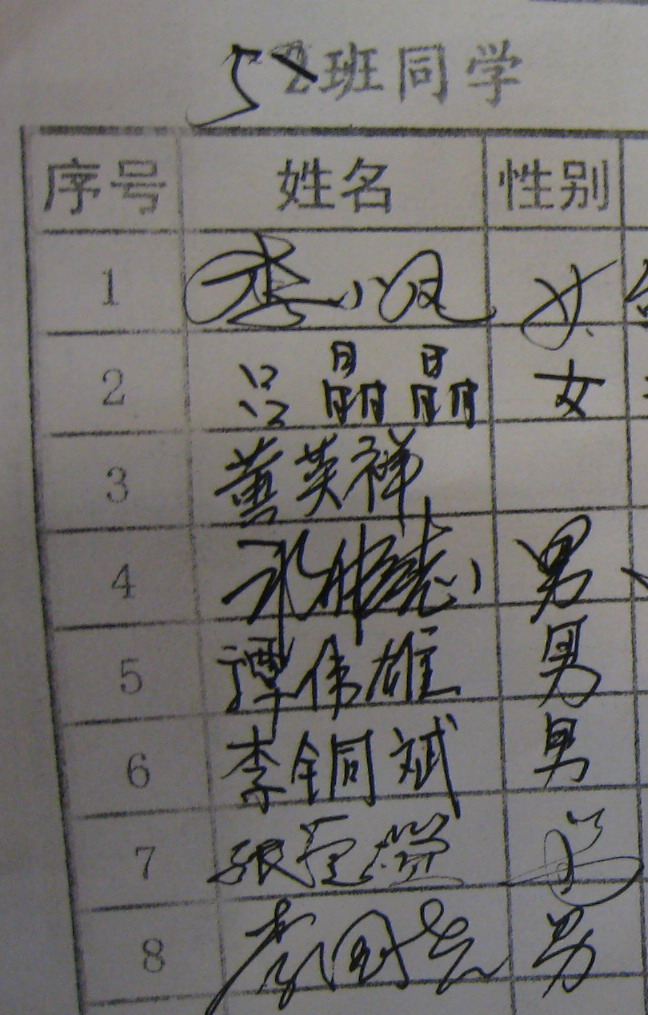 5 班同学
序号 姓名 性别
1 李小凤 女
2 吕晶晶 女
3 黄英祥
4 志 男
5 谭伟雄 男
6 李铜斌 男
7 张
8 李国 男